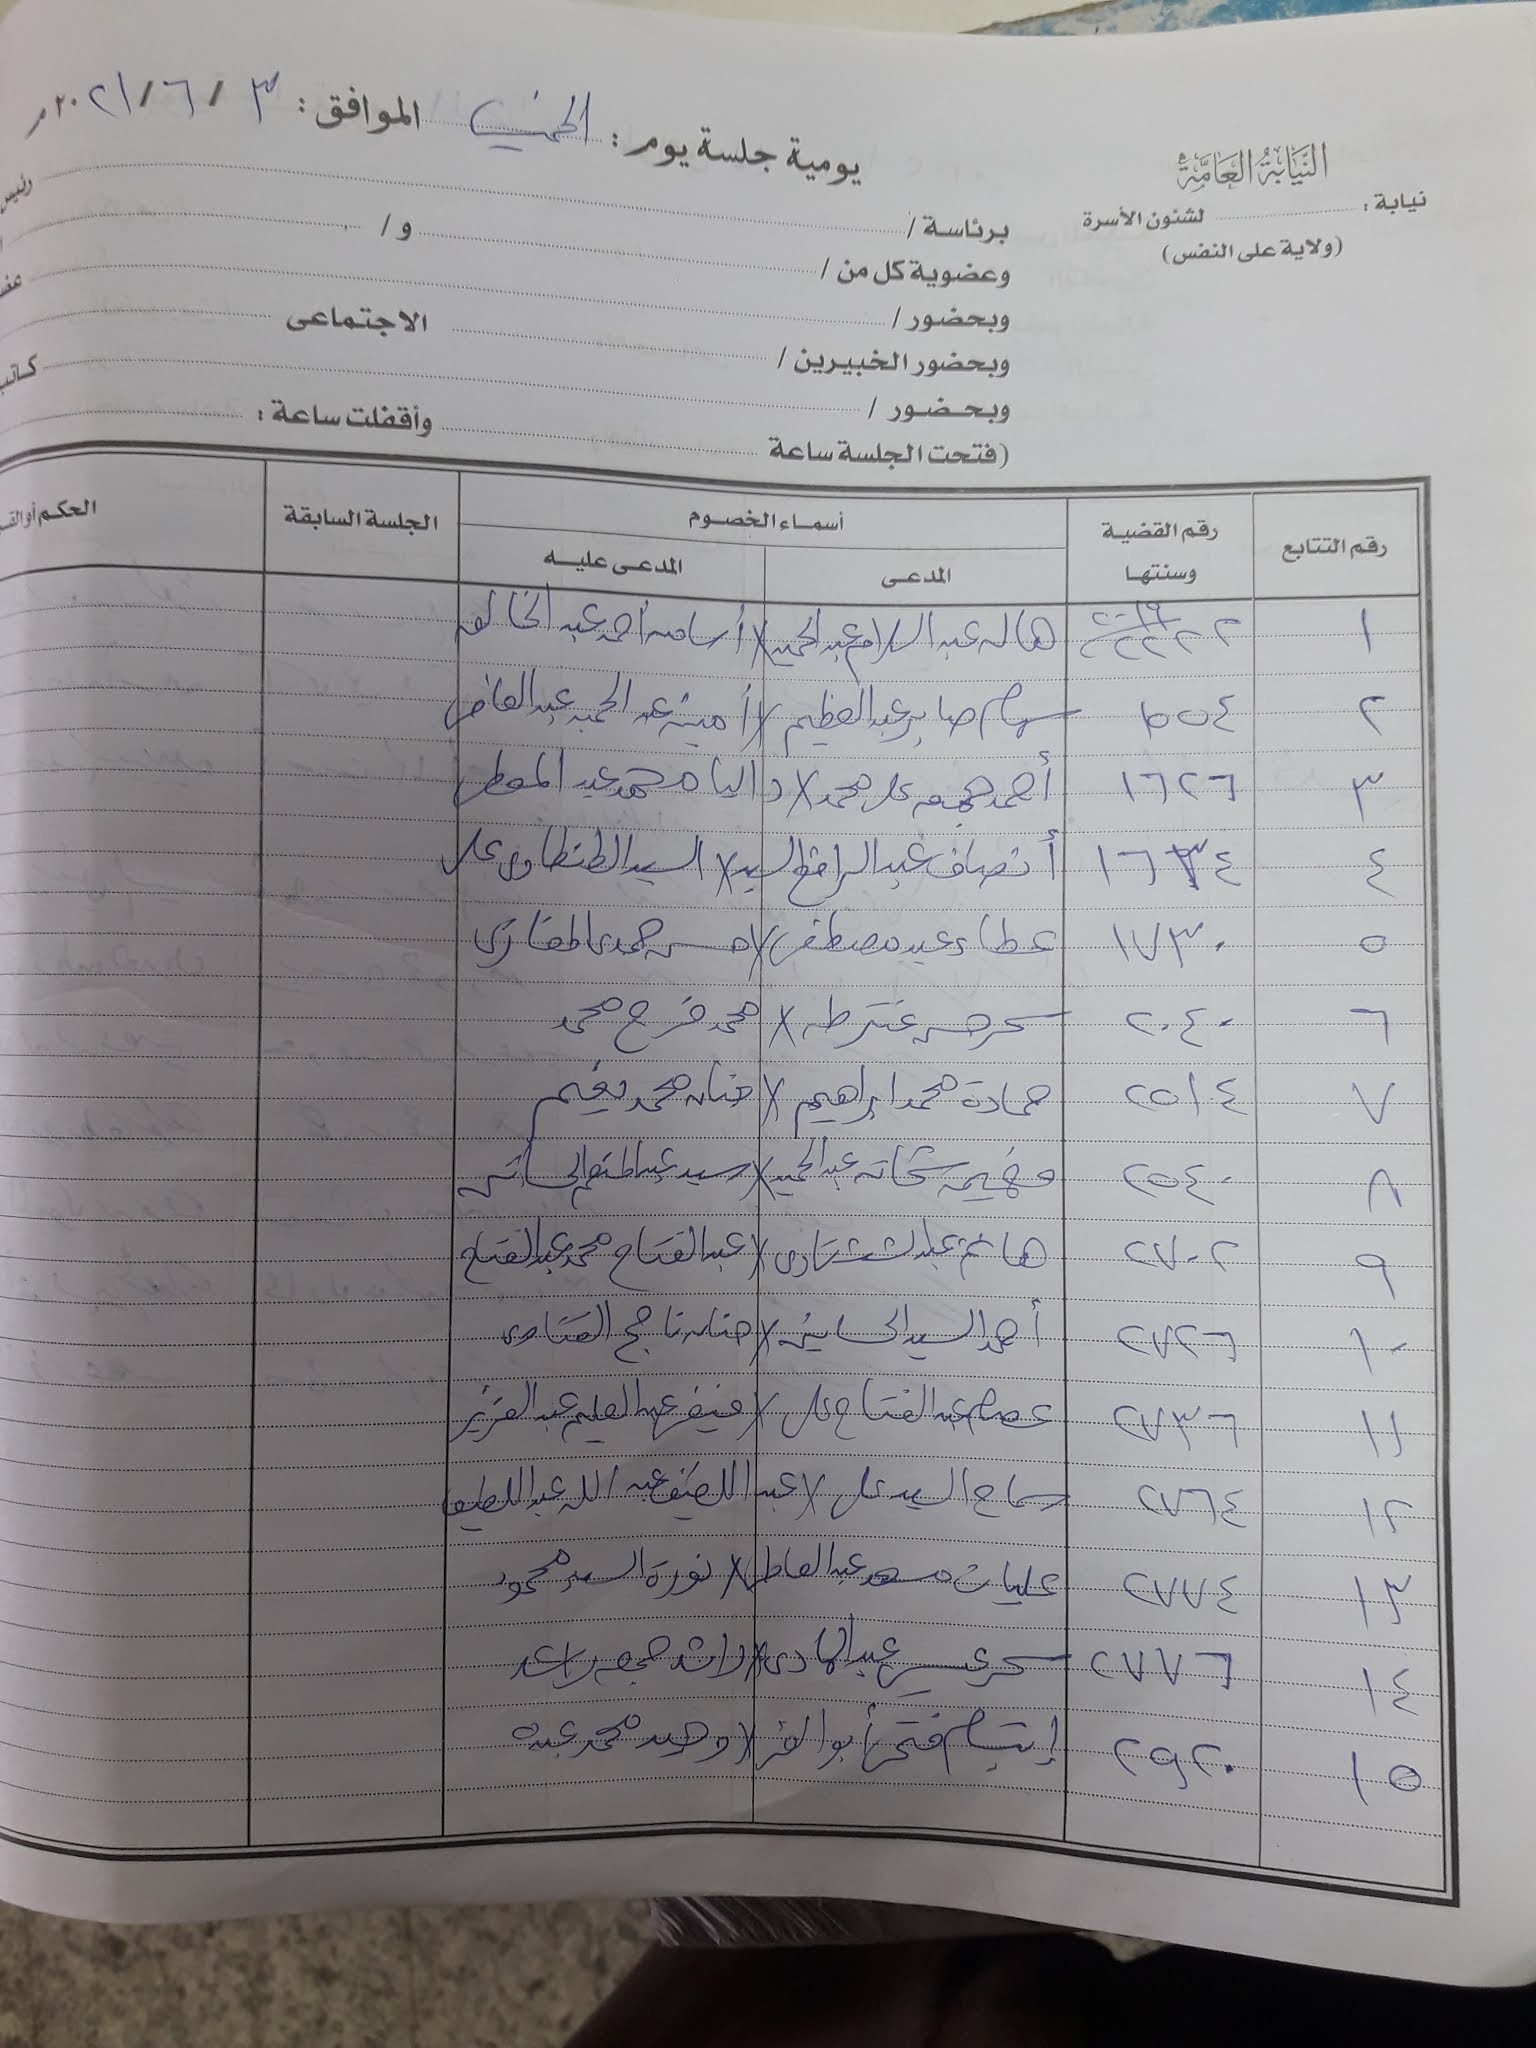 النيابة العامة
نيابة : لشئون الأسرة
(ولاية على النفس)
يومية جلسة يوم : الخميس الموافق : ٣ / ٦ / ٢٠٢١م
برئاسة / رئيس
وعضوية كل من / و /
وبحضور /
وبحضور الخبيرين / الاجتماعى
وبحضور / كاتب
(فتحت الجلسة ساعة وأقفلت ساعة :
رقم التتابع رقم القضية وسنتها أسماء الخصوم الجلسة السابقة الحكم أو
المدعى المدعى عليه
١ هاله عبد السلام عبد الحميد X أسامه أحمد عبد الخالق
٢ ١٥٥٤ سهام صابر عبد العظيم X أمينة عبد الحميد عبد العاطى
٣ ١٦٢٦ أحمد جمعه على محمد X داليا محمد عبد المعطى
٤ ١٦٣٤ أنصاف عبد الرافع السيد X السيد الطنطاوى على
٥ ١٧٣٠ عطاء عيد مصطفى X حسن حمدى المغازى
٦ ٢٠٤٠ سحر حسن عنتر طه X محمد فرج محمد
٧ ٢٥١٤ حمادة محمد ابراهيم X حنان محمد نعيم
٨ ٢٥٤٠ فهيمه شحاته عبد الحميد X سيد عبد المنعم
٩ ٢٧٠٢ هانم عبد الشناوى X عبد الفتاح محمد عبد الفتاح
١٠ ٢٧٢٦ أحمد السيد X حنان ناجح
١١ ٢٧٣٦ عصام عبد الفتاح على X عبد العليم عبد العزيز
١٢ ٢٧٦٤ سماح السيد على X عبد اللطيف عبد الله عبد اللطيف
١٣ ٢٧٧٤ عليات مسعد عبد العاطى X نورة السيد محمود
١٤ ٢٧٧٦ سحر عبد الهادى X راشد جمعه راشد
١٥ ٢٩٢٠ إبتسام فتحى أبو X وحيد محمد عبده